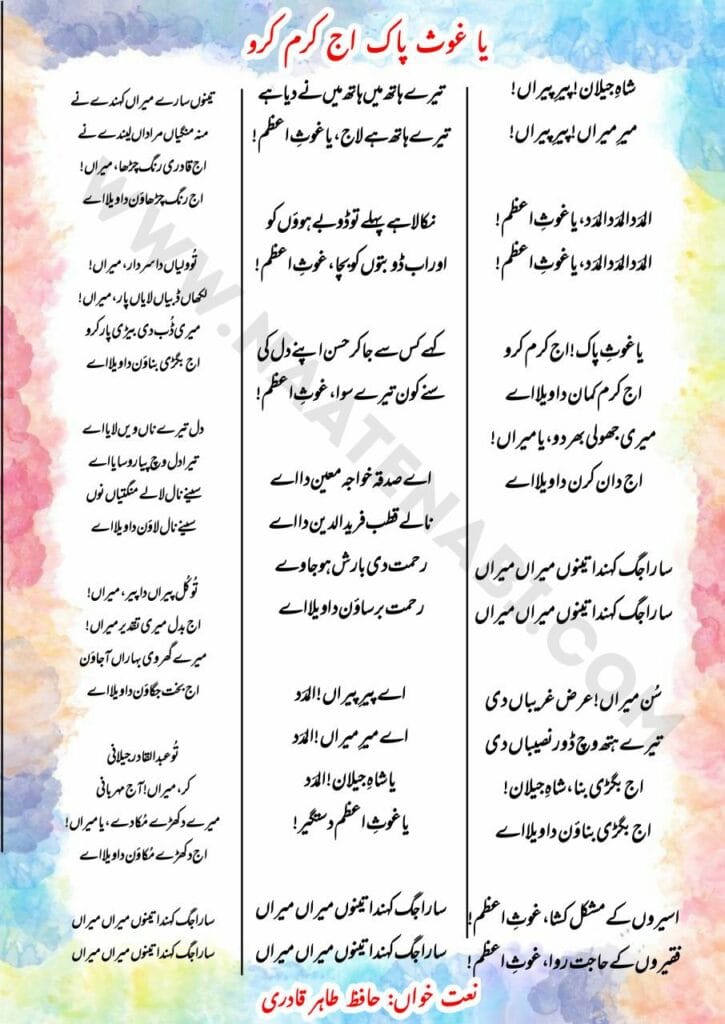 یا غوث پاک اج کرم کرو
شاہِ جیلان! پیرِ پیراں!
میرِ میراں! پیرِ پیراں!
المَدد المَدد المَدد، یا غوثِ اعظم!
المَدد المَدد المَدد، یا غوثِ اعظم!
یا غوثِ پاک! اج کرم کرو
اج کرم کمان دا ویلا اے
میری جھولی بھر دو، یا میراں!
اج دان کرن دا ویلا اے
سارا جگ کہندا تینوں میراں میراں
سارا جگ کہندا تینوں میراں میراں
سُن میراں! عرض غریباں دی
تیرے ہتھ وچ ڈور نصیباں دی
اج بگڑی بنا، شاہِ جیلان!
اج بگڑی بناؤن دا ویلا اے
اسیروں کے مشکل کشا، غوثِ اعظم!
فقیروں کے حاجت روا، غوثِ اعظم!
تیرے ہاتھ میں ہاتھ میں نے دیا ہے
تیرے ہاتھ ہے لاج، یا غوثِ اعظم!
نکالا ہے پہلے تو ڈوبے ہوؤں کو
اور اب ڈوبتوں کو بچا، غوثِ اعظم!
کہے کس سے جا کر حسن اپنے دل کی
سنے کون تیرے سوا، غوثِ اعظم!
اے صدقہ خواجہ معین دا اے
نالے قطب فرید الدین دا اے
رحمت دی بارش ہو جاوے
رحمت برساؤن دا ویلا اے
اے پیرِ پیراں! المَدد
اے میرِ میراں! المَدد
یا شاہِ جیلان! المَدد
یا غوثِ اعظم دستگیر!
سارا جگ کہندا تینوں میراں میراں
سارا جگ کہندا تینوں میراں میراں
تینوں سارے میراں کہندے نے
منہ منگیاں مراداں لیندے نے
اج قادری رنگ چڑھا، میراں!
اج رنگ چڑھاؤن دا ویلا اے
تُو ولیاں دا سردار، میراں!
لکھاں ڈبیاں لایاں پار، میراں!
میری ڈُب دی بیڑی پار کرو
اج بگڑی بناؤن دا ویلا اے
دل تیرے ناں ویں لایا اے
تیرا دل وچ پیار وسایا اے
سینے نال لالے منگتیاں نوں
سینے نال لاؤن دا ویلا اے
تُو کُل پیراں دا پیر، میراں!
اج بدل میری تقدیر میراں!
میرے گھر وی بہاراں آجاون
اج بخت جگاؤن دا ویلا اے
تُو عبدالقادر جیلانی
کر، میراں! آج مہربانی
میرے دکھڑے مُکا دے، یا میراں!
اج دکھڑے مُکاؤن دا ویلا اے
سارا جگ کہندا تینوں میراں میراں
سارا جگ کہندا تینوں میراں میراں
نعت خواں: حافظ طاہر قادری
WWW.NAATENABI.COM